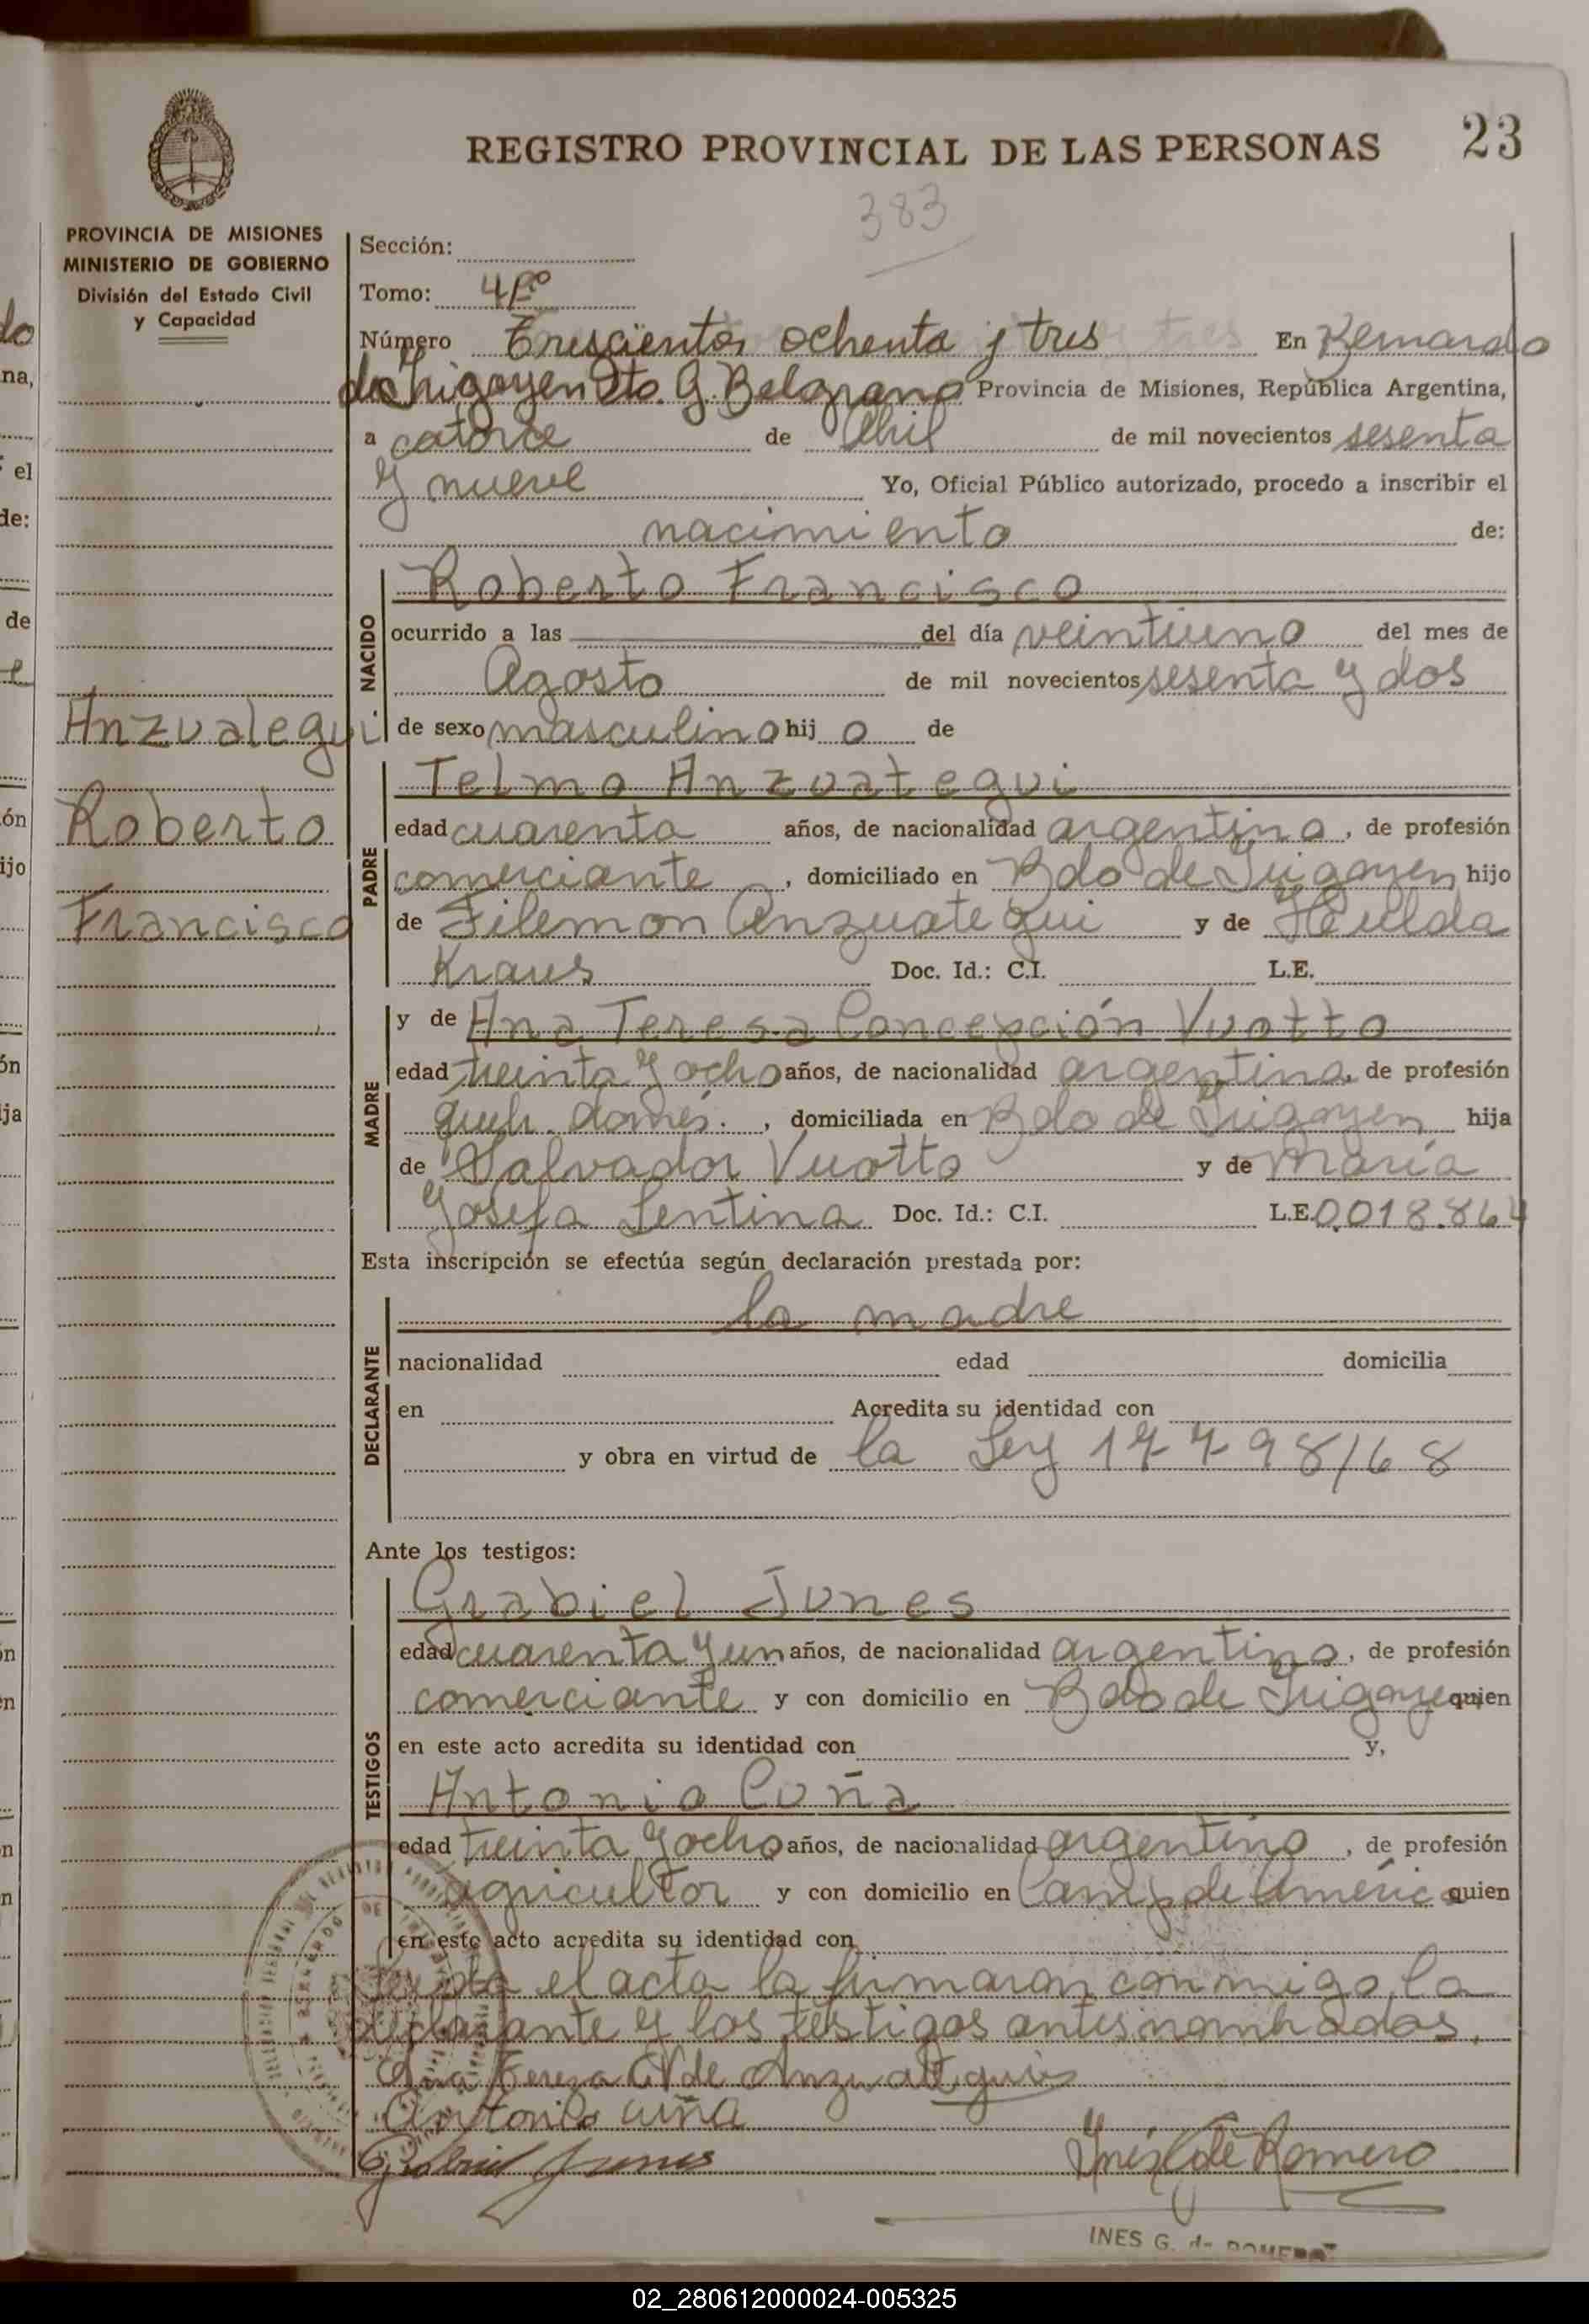 REGISTRO PROVINCIAL DE LAS PERSONAS
23
383
PROVINCIA DE MISIONES
MINISTERIO DE GOBIERNO
División del Estado Civil
y Capacidad
Sección:
Tomo: 4º
Número Trescientos ochenta y tres En Bernardo
de Irigoyen Dto. G. Belgrano Provincia de Misiones, República Argentina,
a catorce de Abril de mil novecientos sesenta
y nueve Yo, Oficial Público autorizado, procedo a inscribir el
nacimiento de:
NACIDO
Roberto Francisco
ocurrido a las del día veintiuno del mes de
Agosto de mil novecientos sesenta y dos
de sexo masculino hij o de
Anzualegui
Roberto
Francisco
PADRE
Telmo Anzuategui
edad cuarenta años, de nacionalidad argentino, de profesión
comerciante, domiciliado en Bdo de Irigoyen hijo
de Filemon Anzuategui y de Hulda
Kraus Doc. Id.: C.I. L.E.
MADRE
y de Ana Teresa Concepción Vuotto
edad treinta y ocho años, de nacionalidad argentina, de profesión
queh. domés., domiciliada en Bdo de Irigoyen hija
de Salvador Vuotto y de María
Josefa Lentina Doc. Id.: C.I. L.E. 0.018.864
Esta inscripción se efectúa según declaración prestada por:
DECLARANTE
la madre
nacionalidad edad domicilia
en Acredita su identidad con
y obra en virtud de la Ley 17798/68
Ante los testigos:
TESTIGOS
Grabiel Junes
edad cuarenta y un años, de nacionalidad argentino, de profesión
comerciante y con domicilio en Bdo de Irigoyen quien
en este acto acredita su identidad con y,
Antonio Cuña
edad treinta y ocho años, de nacionalidad argentino, de profesión
agricultor y con domicilio en Camp. de América quien
en este acto acredita su identidad con
Leída el acta la firmaron conmigo la
declarante y los testigos antes nombrados.
Ana Teresa C V de Anzuategui
Antonio cuña
Gabriel Junes
Inés G de Romero
INES G. de ROMERO
02_280612000024-005325